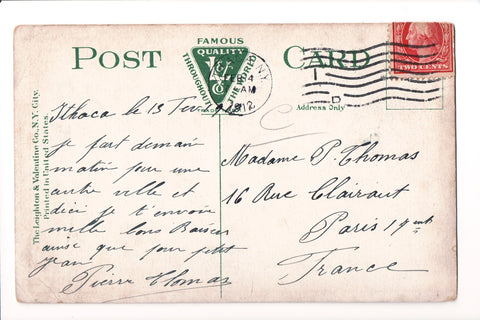 FAMOUS
QUALITY
THROUGHOUT
THE WORLD
POST CARD
V & SONS Co
NY
FEB 4
AM
1912
TWO CENTS
Address Only
The Leighton & Valentine Co., N.Y. City.
Printed in United States.
Ithaca le 13 Fev
je part demain
matin pour une
autre ville et
d'ici je t'envoie
mille bons Baisers
ainsi que pour petit
Jean
Pierre Thomas
Madame P. Thomas
16 Rue Clairaut
Paris 17
France